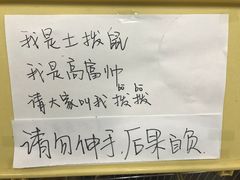 我是土拨鼠
我是高富帅
bō bō
请大家叫我拨拨
请勿伸手,后果自负